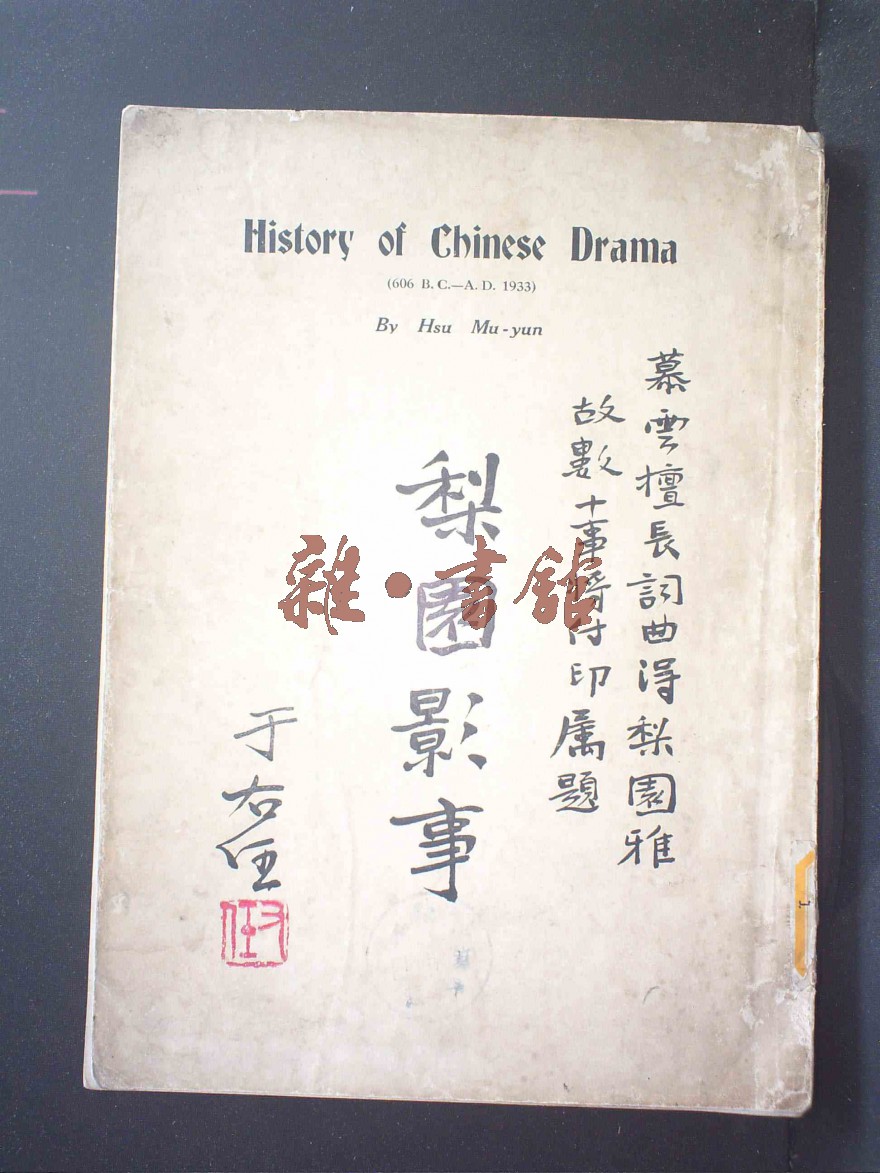 History of Chinese Drama
(606 B.C.—A.D. 1933)
By Hsu Mu-yun
慕雲擅長詞曲得梨園雅
故數十事將付印属題
梨園影事
于右任
雜·書館
1